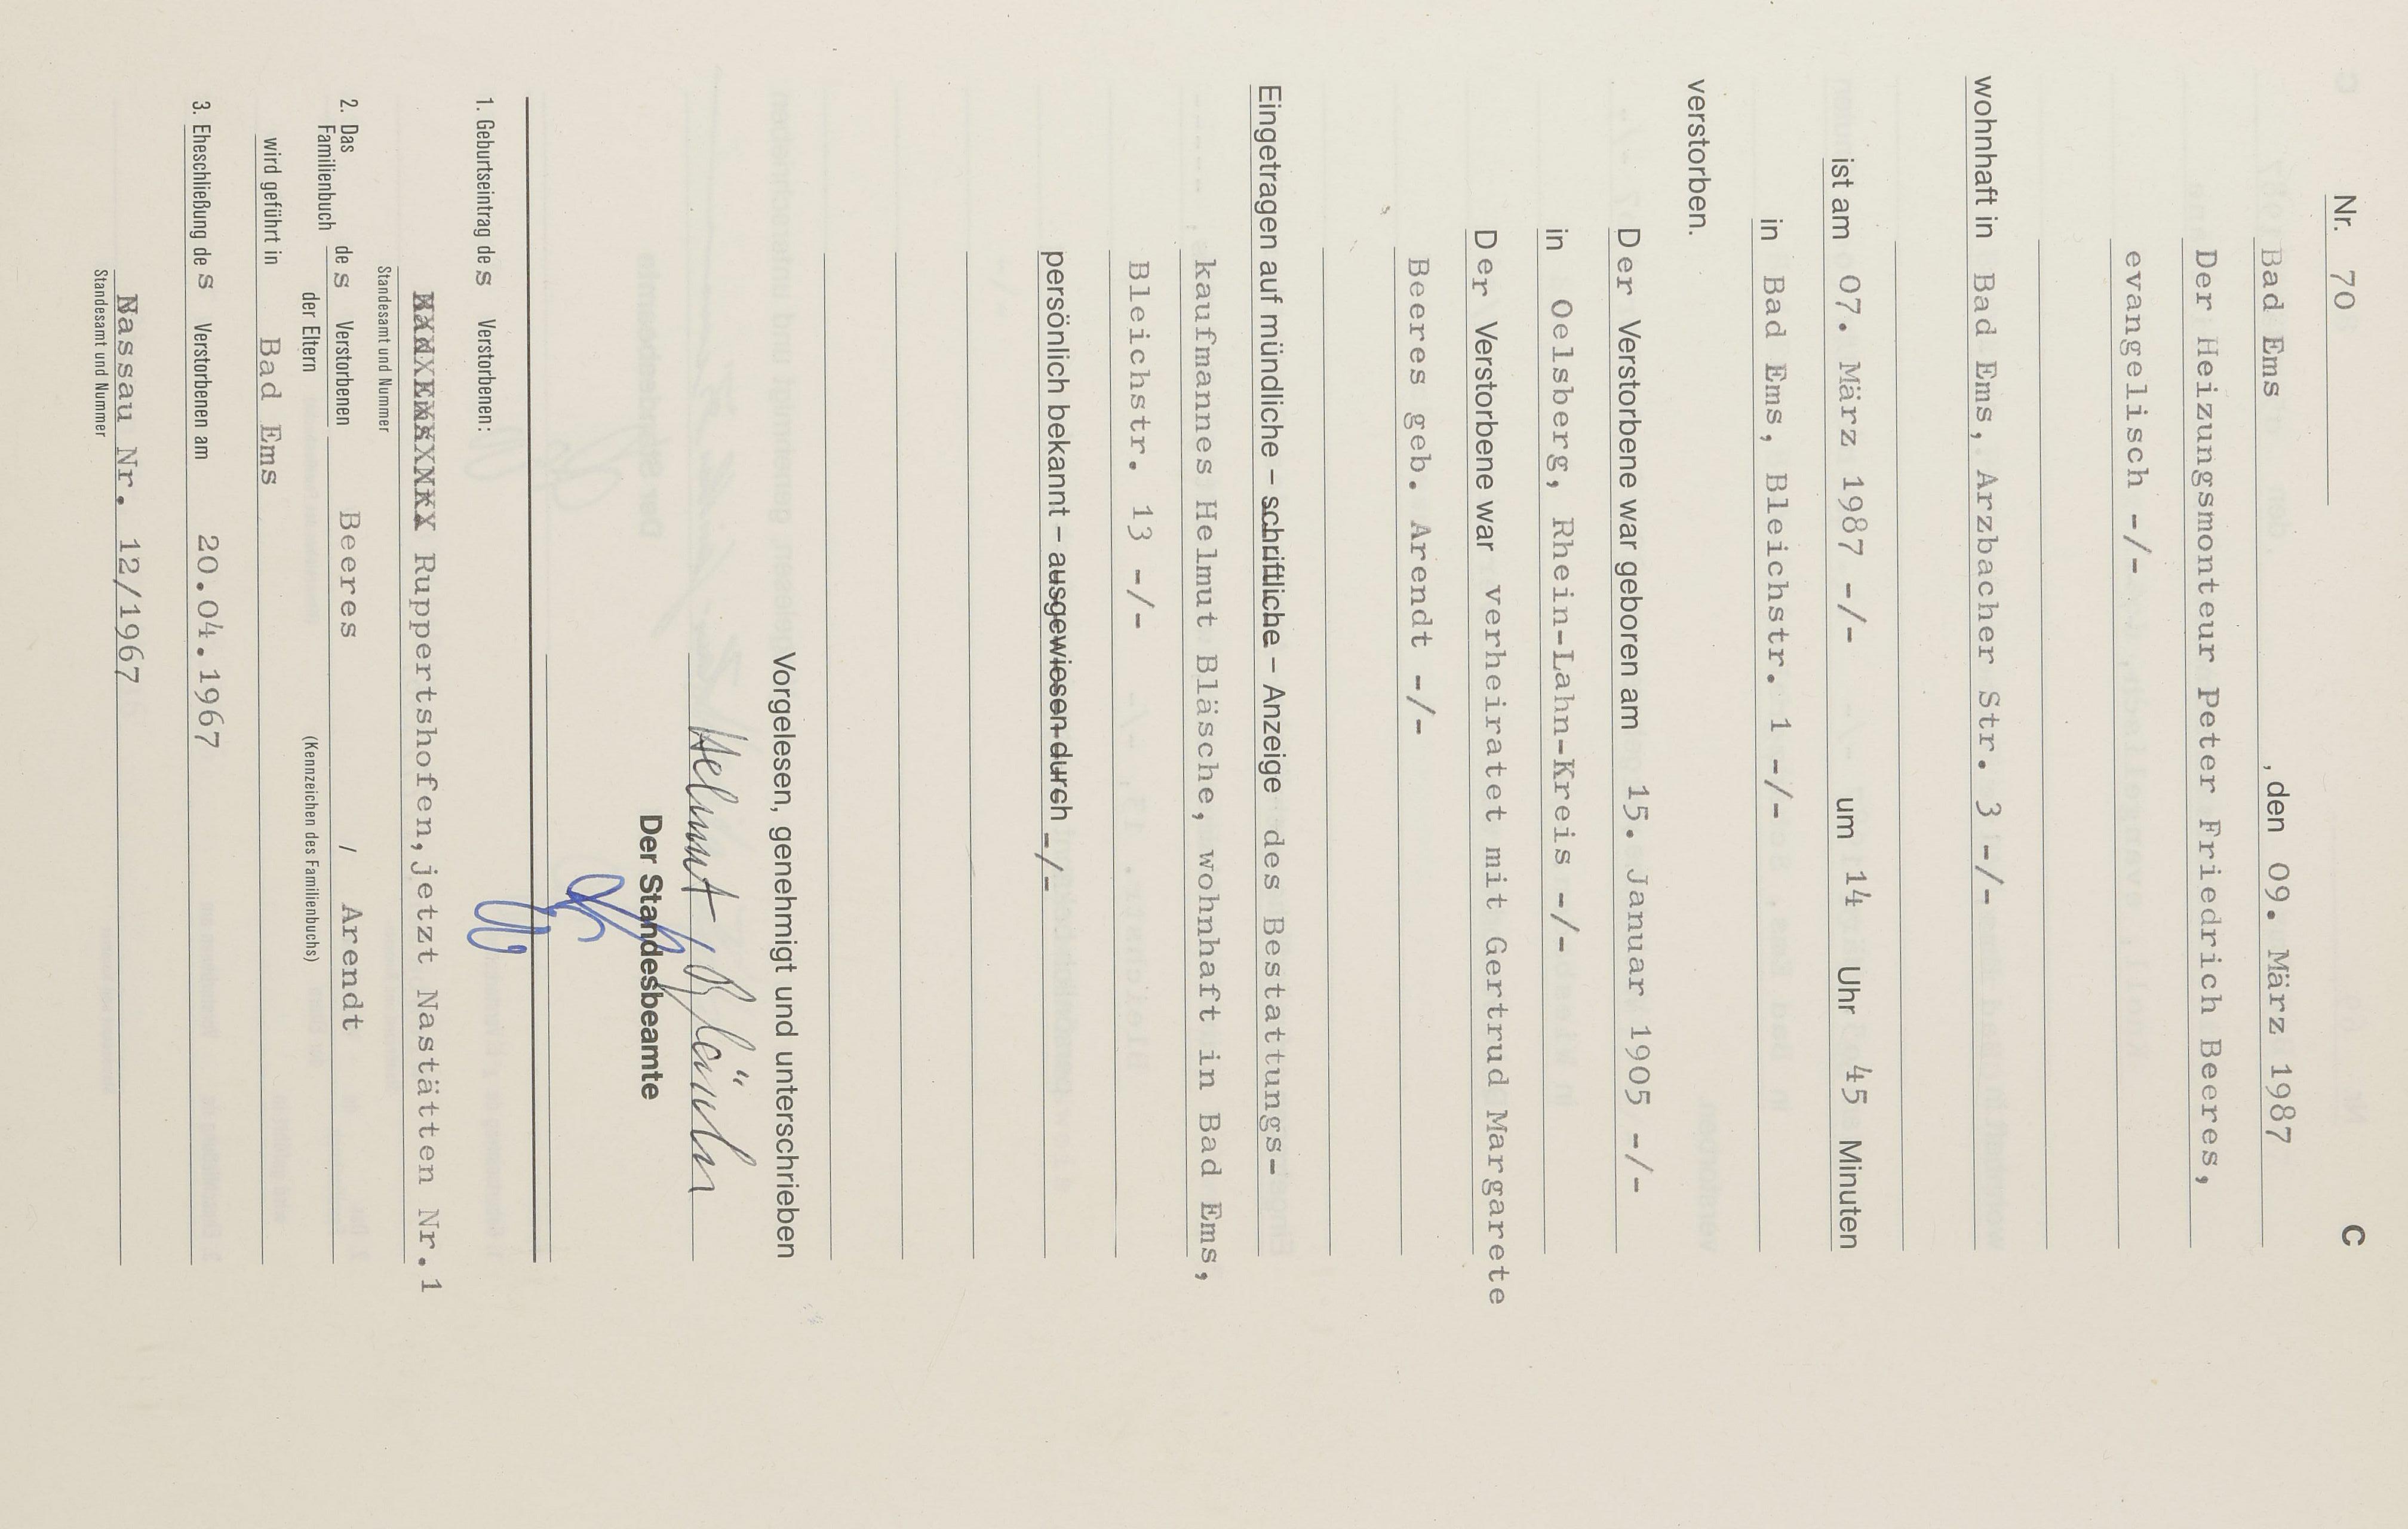 C
Nr. 70
Bad Ems, den 09. März 1987
Der Heizungsmonteur Peter Friedrich Beeres,
evangelisch -/-
wohnhaft in Bad Ems, Arzbacher Str. 3 -/-
ist am 07. März 1987 -/- um 14 Uhr 45 Minuten
in Bad Ems, Bleichstr. 1 -/-
verstorben.
Der Verstorbene war geboren am 15. Januar 1905 -/-
in Oelsberg, Rhein-Lahn-Kreis -/-
Der Verstorbene war verheiratet mit Gertrud Margarete
Beeres geb. Arendt -/-
Eingetragen auf mündliche – schriftliche – Anzeige des Bestattungs-
kaufmannes Helmut Bläsche, wohnhaft in Bad Ems,
Bleichstr. 13 -/-
persönlich bekannt – ausgewiesen durch -/-
Vorgelesen, genehmigt und unterschrieben
Helmut Bläsche
Der Standesbeamte
1. Geburtseintrag des Verstorbenen:
Ruppertshofen,jetzt Nastätten Nr.1
Standesamt und Nummer
2. Das Familienbuch des Verstorbenen Beeres / Arendt
der Eltern (Kennzeichen des Familienbuchs)
wird geführt in Bad Ems
3. Eheschließung des Verstorbenen am 20.04.1967
Nassau Nr. 12/1967
Standesamt und Nummer